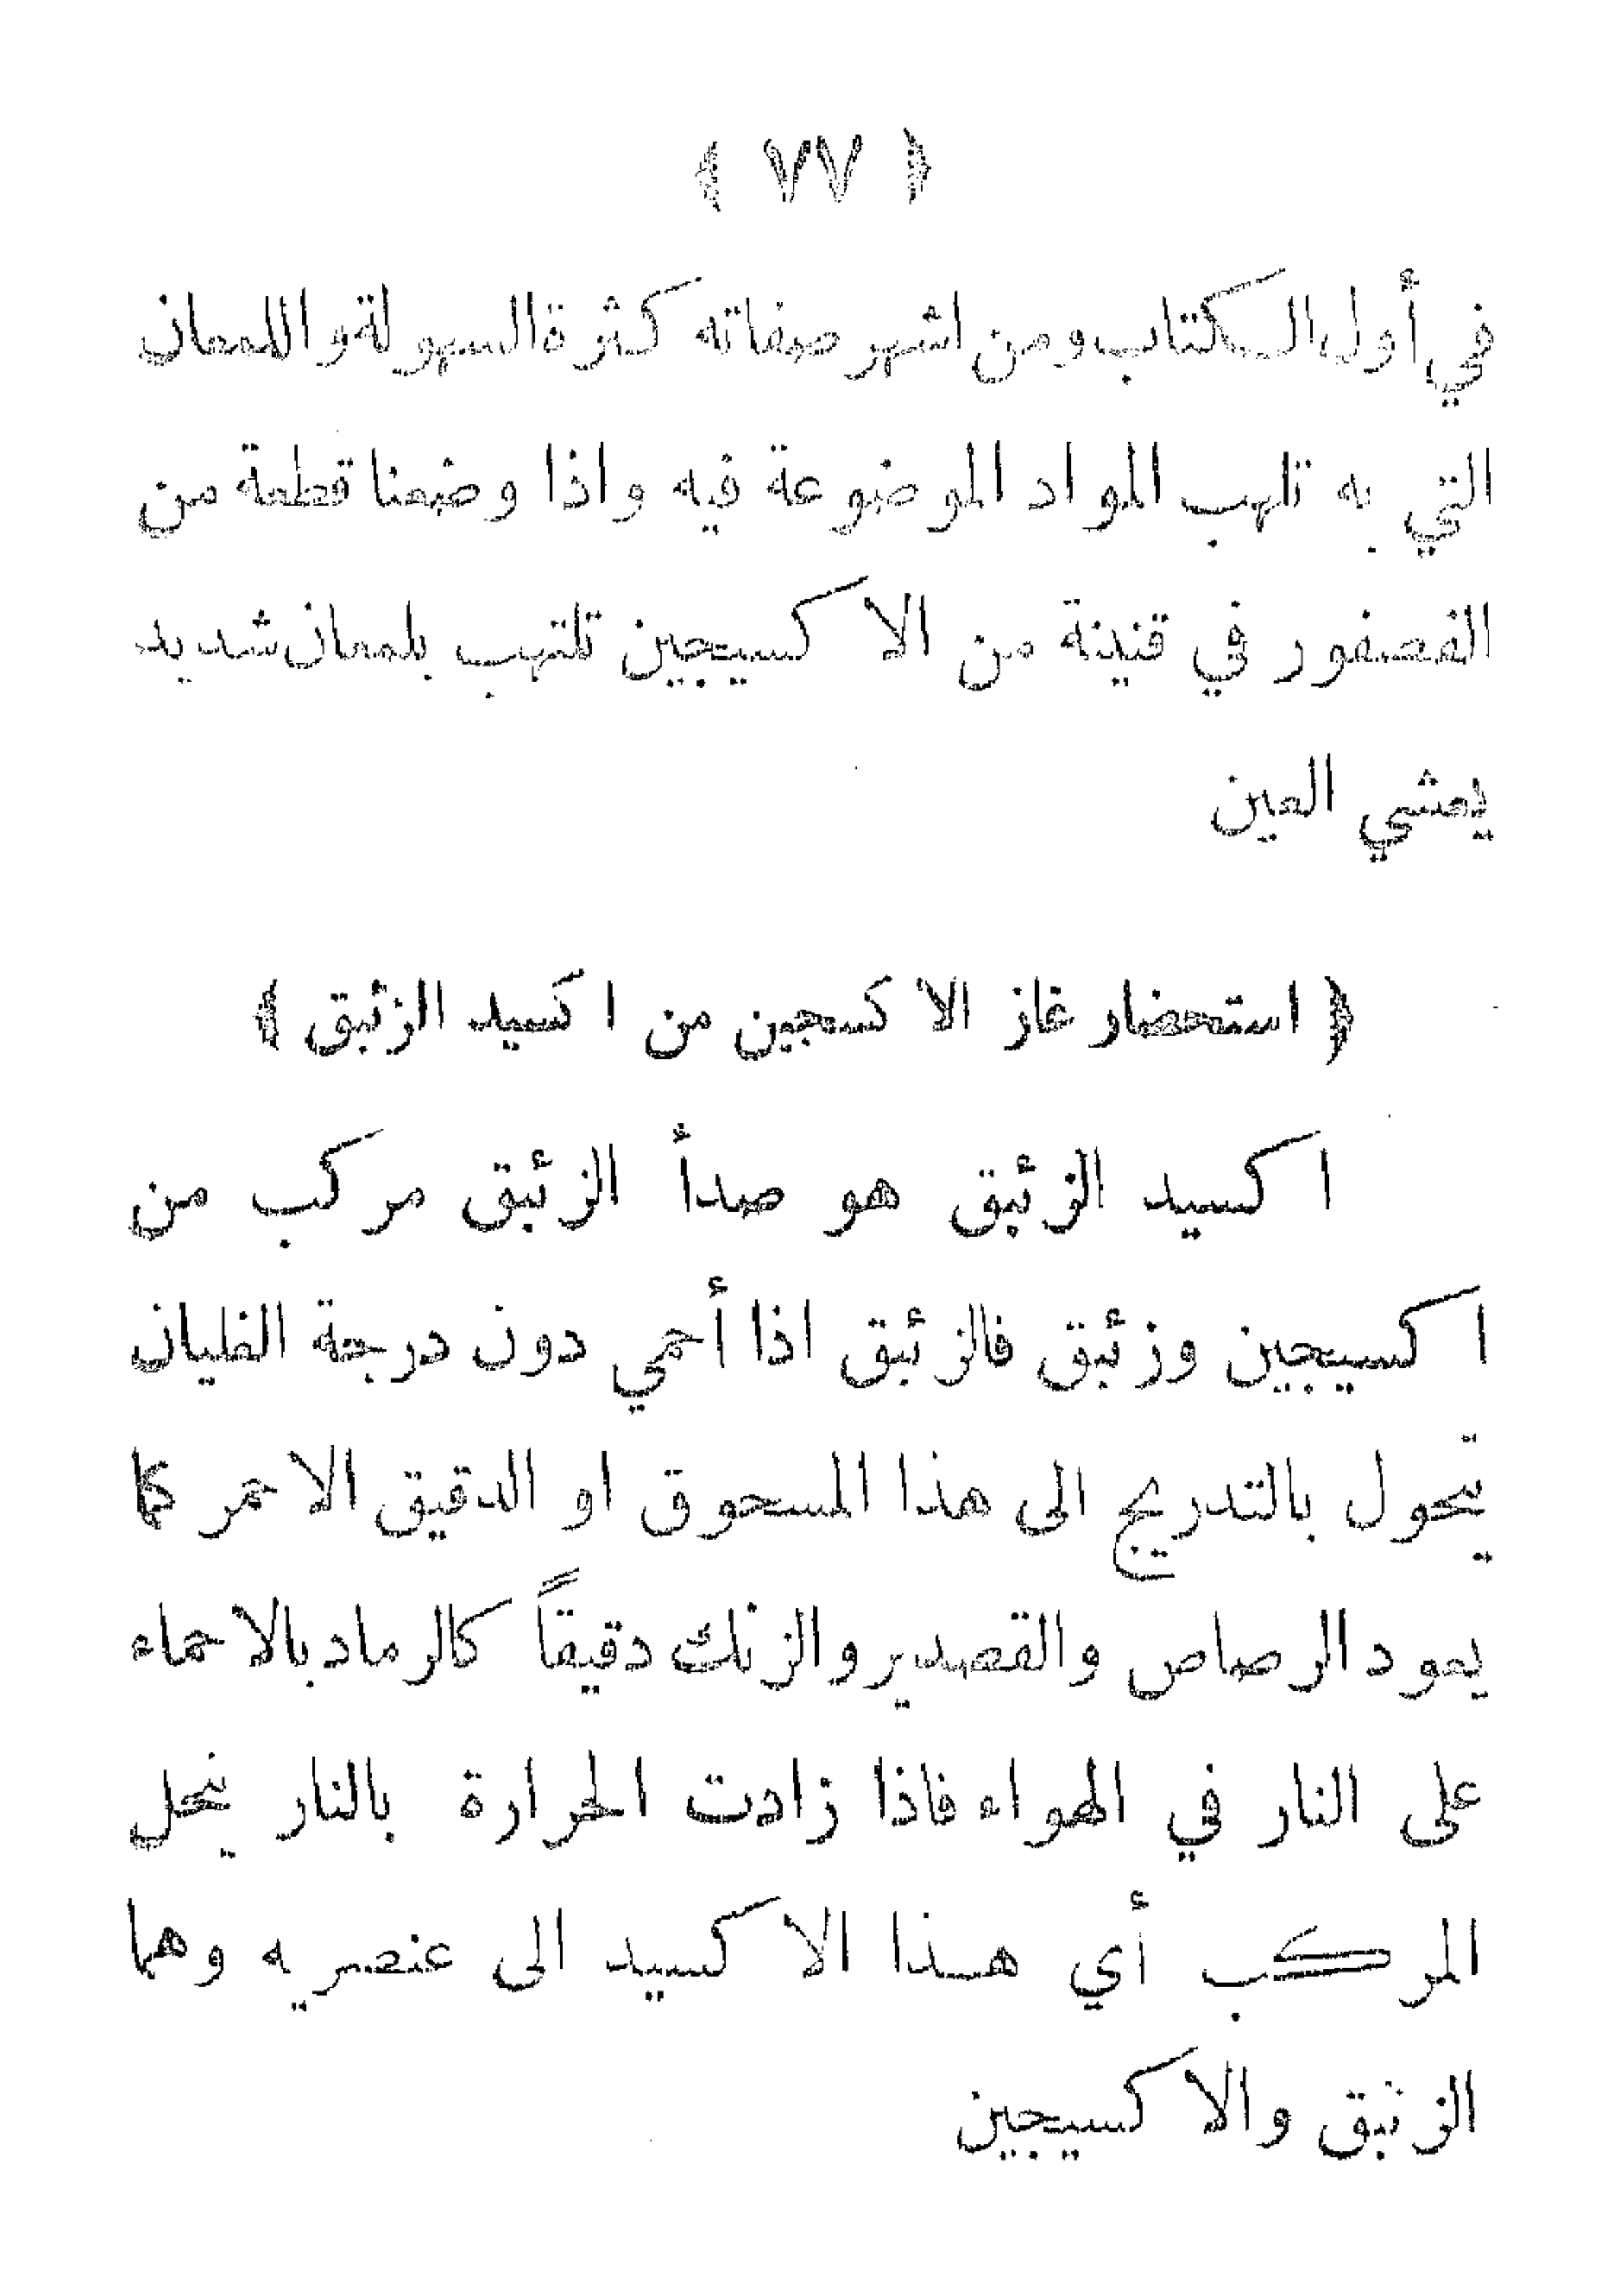 ﴿ ٧٧ ﴾
في أول الكتاب ومن اشهر صفاته كثرة السهولة واللمعان
التي به تلهب المواد الموضوعة فيه واذا وضعنا قطعة من
الفصفور في قنينة من الاكسيجين تلتهب بلمعان شديد
يعشي العين
﴿ استحضار غاز الاكسجين من اكسيد الزئبق ﴾
اكسيد الزئبق هو صدأ الزئبق مركب من
اكسيجين وزئبق فالزئبق اذا أحمي دون درجة الغليان
يتحول بالتدريج الى هذا المسحوق او الدقيق الاحمر كما
يعود الرصاص والقصدير والزنك دقيقاً كالرماد بالاحماء
على النار في الهواء فاذا زادت الحرارة بالنار ينحل
المركب أي هذا الاكسيد الى عنصريه وهما
الزئبق والاكسيجين